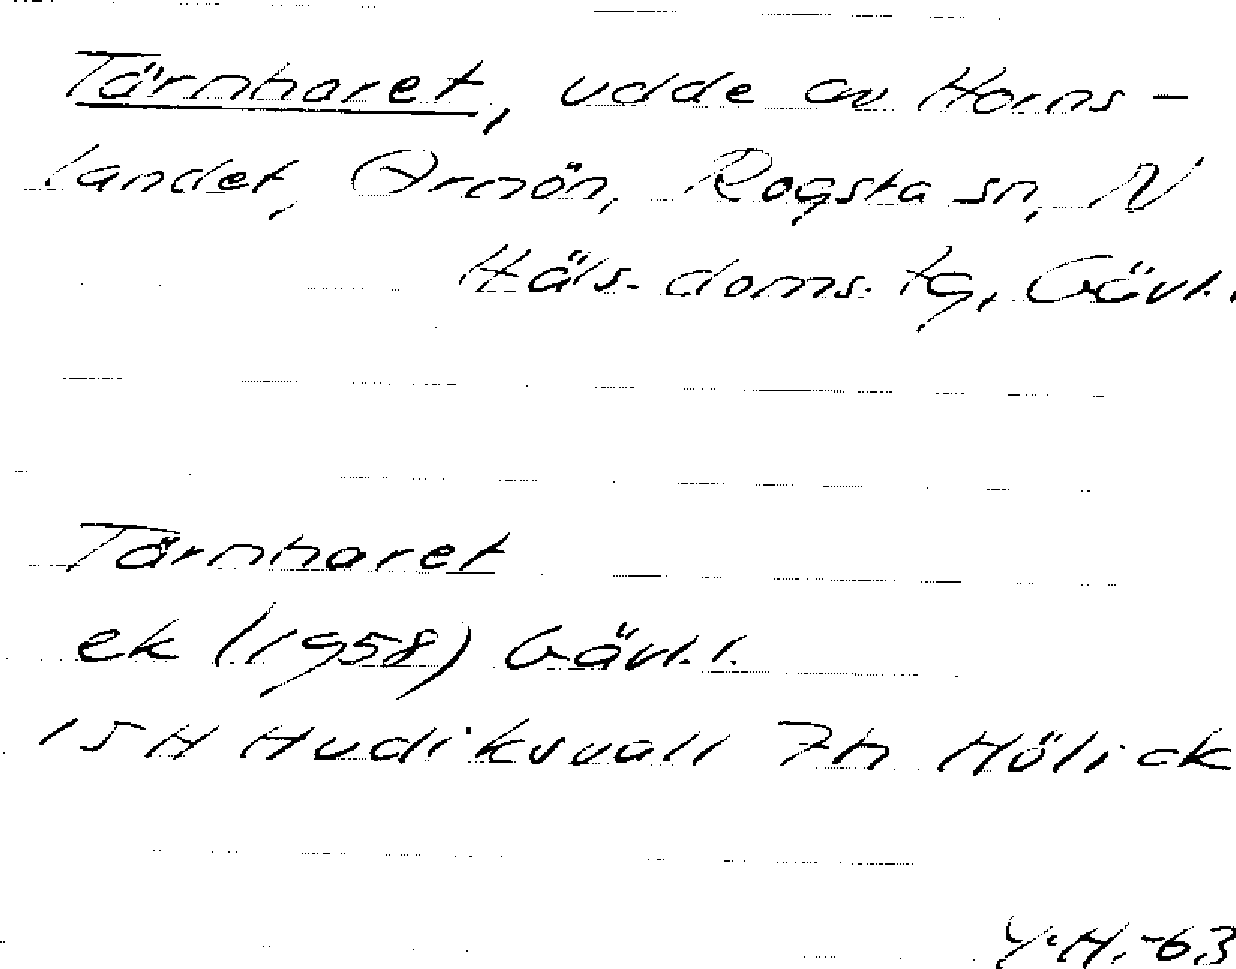 Tärnharet, udde av Horns-
landet, Arnön, Rogsta sn, N
Häls. doms. tg, Gävl.
Tärnharet
ek (1958) Gävl.l.
15H Hudiksvall 7h Hölick
Y.H.-63